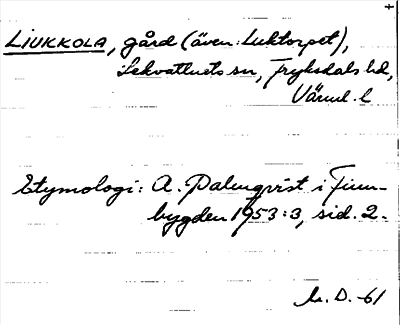 LIUKKOLA, gård (även: Luktorpet),
Lekvattnets sn, Fryksdals hd,
Värml. l
Etymologi: A. Palmqvist i Finn-
bygden 1953:3, sid. 2.
M. D. -61